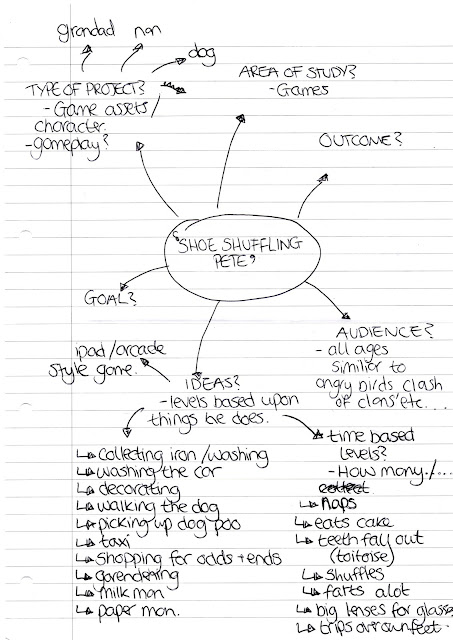 grandad nan
dog
TYPE OF PROJECT?
- Game assets/
character.
- gameplay?
AREA OF STUDY?
- Games
OUTCOME?
"SHOE SHUFFLING
PETE"
GOAL?
AUDIENCE?
- all ages
similiar to
angry birds clash
of clans' etc....
ipad/arcade
style game.
IDEAS?
- levels based upon
things he does.
collecting iron/washing
washing the car
decorating
walking the dog
picking up dog poo
taxi
shopping for odds + ends
gardening
milk man
paper man.
time based
levels?
- How many./...
naps
eats cake
teeth fall out
(toitoise)
shuffles
farts alot
big lenses for glasses
trips over own feet..